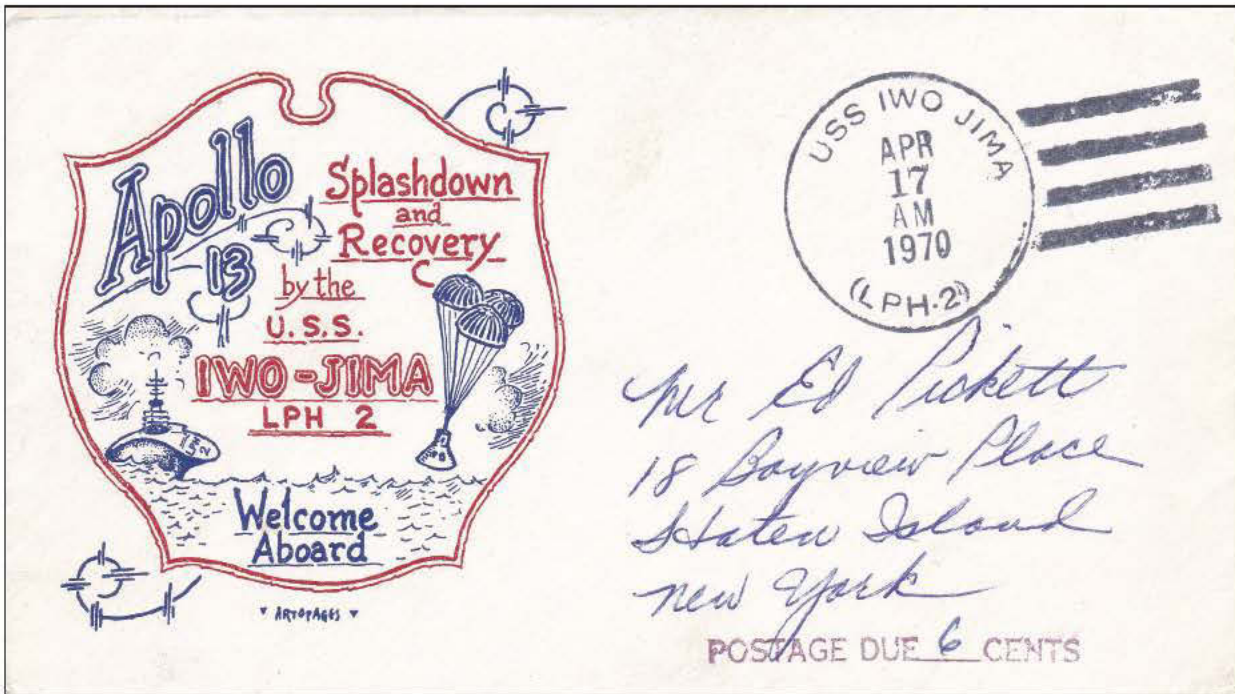 Apollo
13
Splashdown
and
Recovery
by the
U.S.S.
IWO-JIMA
LPH 2
Welcome
Aboard
ARTOPAGES
USS IWO JIMA
APR
17
AM
1970
(LPH-2)
Mr Ed Pickett
18 Bayview Place
Staten Island
New York
POSTAGE DUE 6 CENTS